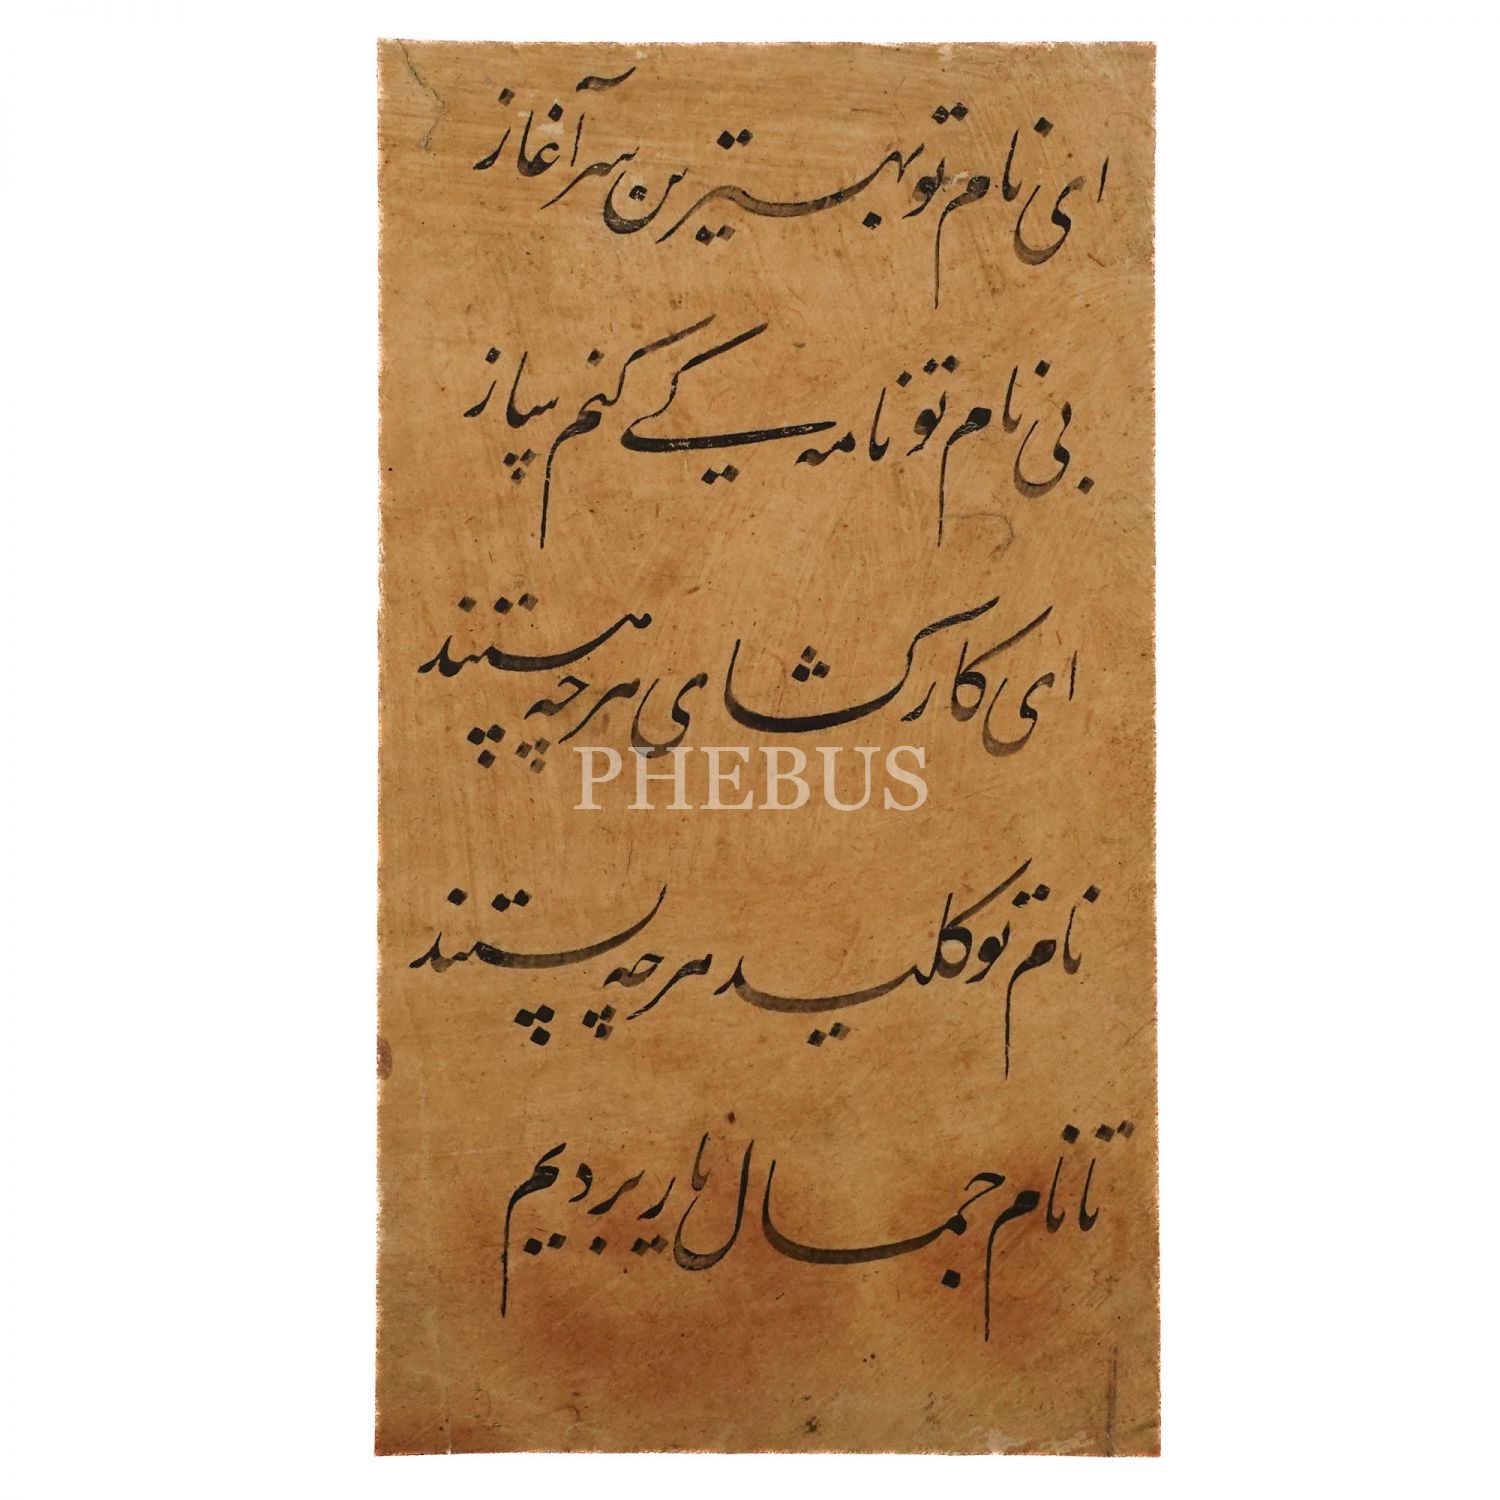 ای نام تو بهترین سرآغاز
بی نام تو نامه کی کنم ساز
ای کارکشای هرچه هستند
نام تو کلید هرچه بستند
تا نام جمال یار بردیم
PHEBUS